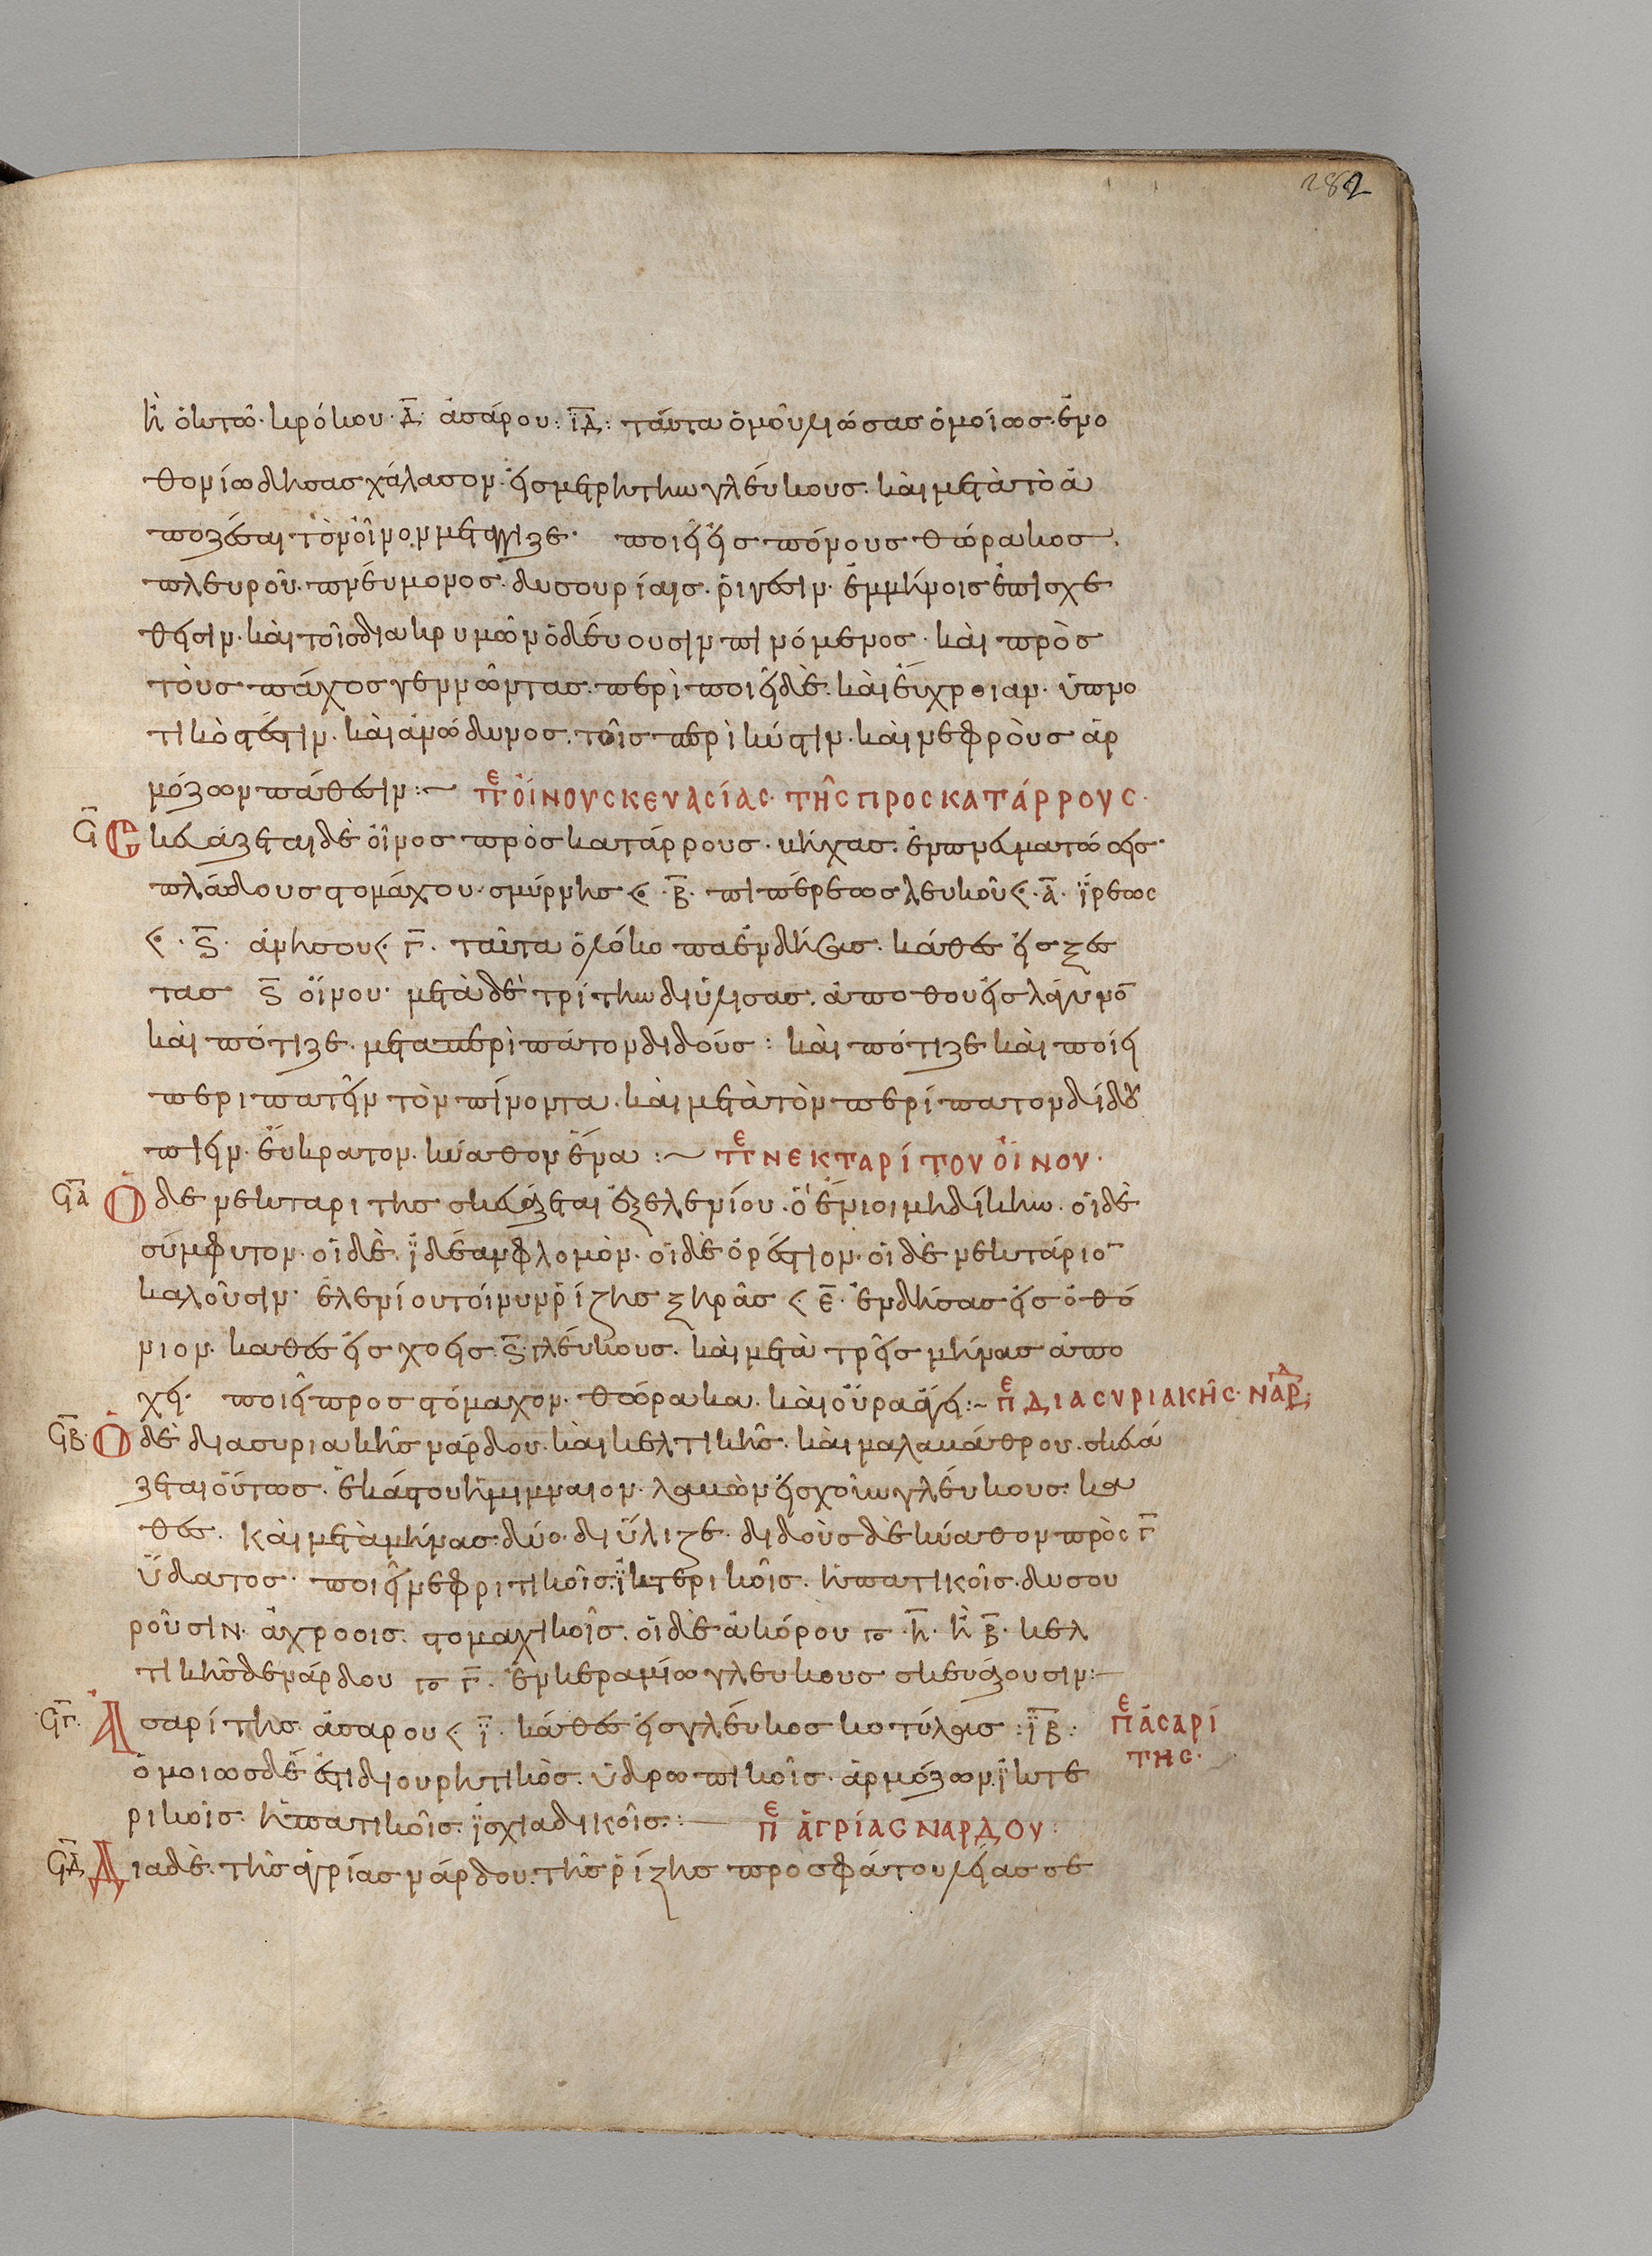 ἢ ὀκτῶ· κρόκου· δ̄· ἀσάρου: ῑδ̄: ταῦτα ὁμοῦ λιώσας ὁμοίως· ἐν ὀ
θονίω δήσας χάλασον· εἰς μετρητὴν γλεύκους· καὶ μετὰ τὸ ἀ
ποζέσαι τὸν οἶνον μετάγγιζε· ποιεῖ εἰς πόνους θώρακος.
πλευροῦ· πνεύμονος· δυσουρίαις· ῥίγεσιν· ἐμμήνοις ἐπισχε
θεῖσιν· καὶ τοῖς δια κρυμῶν ὁδεύουσιν πινόμενος· καὶ πρὸς
τοὺς πάχος γεννῶντας· περιποιεῖ δὲ· καὶ εὔχροιαν· ὑπνο
τικὸς ἐστιν· καὶ ἀνώδυνος· τοῖς περὶ κύστιν· καὶ νεφροὺς ἁρ
μόζων πάθεσιν:~ Πε ΟἴΝΟΥ ΣΚΕΥΑΣΊΑΣ· ΤΗ͂Σ ΠΡΟΣ ΚΑΤΆΡΡΟΥΣ·
Ϛ̄ Σκευάζεται δὲ οἶνος πρὸς κατάρρους· βήχας· ἐμπνευματώσεις·
πλάδους στομάχου· σμύρνης <· β̄· πιπέρεως λευκοῦ <· ᾱ· ἴρεως
<· ϛ̄· ἀνήσου <· γ̄· ταῦτα ὁλόκοπα ἐνδήσας· κάθες εἰς ξέσ
τας ϛ̄ οἴνου· μετὰ δὲ τρίτην διϋλίσας· ἀποθοῦ εἰς λάγυνο̄
καὶ πότιζε· μετα περὶπατον διδούς: καὶ πότιζε καὶ ποίει
περιπατεῖν τὸν πίνοντα· καὶ μετὰ τὸν περίπατον δίδου
πιεῖν· εὔκρατον· κύαθον ἕνα:~ Πε ΝΕΚΤΑΡΊΤΟΥ ΟἼΝΟΥ·
Ϛ̄Ᾱ Ὁ δε νεκταρίτης σκευάζεται ἐξ ἑλενίου· ὃ ἔνιοι μηδίκην· οἱ δὲ
σύμφυτον· οἱ δὲ ἰδέαν φλομὸν· οἱ δὲ ὀρέστιον· οἱ δὲ νεκτάριο̄
καλοῦσιν· ἑλενίου τοίνυν ῥίζης ξηρᾶς <· ε̄· ἐνδήσας εἰς ὀθό
νιον· καθες εἰς χοεῖς· ϛ̄· γλεύκους· καὶ μετὰ τρεῖς μῆνας ἀπο
χεῖ· ποιεῖ προς στόμαχον· θώρακα· καὶ οὖρα ἄγει:~ Πε ΔΙΑ ΣΥΡΙΑΚΗ͂Σ· ΝΑΡΔ:
Ϛ̄Β̄· Ὁ δὲ δια συριακῆς νάρδου· καὶ κελτικῆς· καὶ μαλαβάθρου· σκευά
ζεται οὕτως· ἑκάστου ἡμιμναιον· λαβὼν εἰς χοῖν γλεύκους· κα
θες· καὶ μετὰ μῆνας δύο· διΰλιζε· διδοὺς δὲ κύαθον πρὸς γ̄
ὕδατος· ποιεῖ νεφριτικοῖς· ἰκτερικοῖς· ἡπατικοῖς· δυσου
ροῦσιν· ἀχροοις· στομαχικοῖς· οἱ δὲ ἀκόρου Γο ·η̄· ἢ β̄· κελ
τικῆς δε νάρδου Γο γ̄· ἐν κεραμίω γλευκους σκευάζουσιν:
Ϛ̄Γ̄· Ἀσαρίτης· ἀσαρου < ῑ· κάθες εἰς γλεῦκος κοτύλαις: ῑβ̄: Πε ἈΣΑΡΊ
ΤΗΣ·
ὁμοιως δὲ ἐστι διουρητικὸς· ὑδρωπικοῖς· ἁρμόζων· ἰκτε
ρικοῖς· ἡπατικοῖς· ἰσχιαδικοῖς:— Πε ἈΓΡΊΑΣ ΝΑΡΔΟΥ:
Ϛ̄Δ̄ Διὰ δὲ· τῆς ἀγρίας νάρδου· τῆς ῥίζης προσφάτου λείας σε